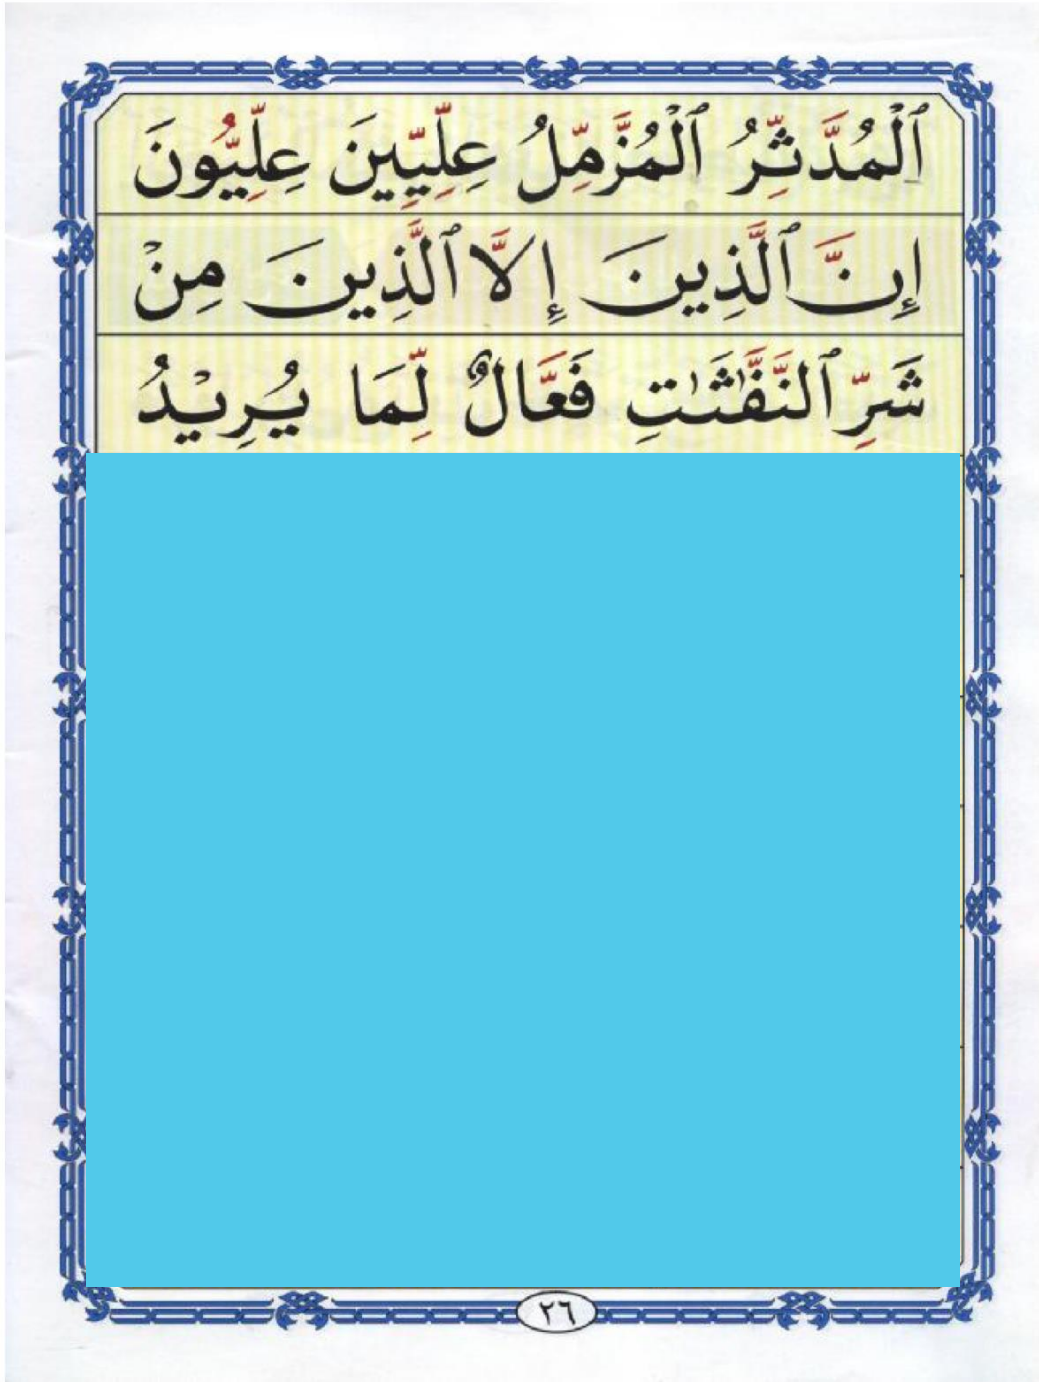 ٱلْمُدَّثِّرُ ٱلْمُزَّمِّلُ عِلِّيِّينَ عِلِّيُّونَ
إِنَّ ٱلَّذِينَ إِلَّا ٱلَّذِينَ مِنْ
شَرِّ ٱلنَّفَّٰثَٰتِ فَعَّالٌ لِّمَا يُرِيْدُ
٢٦